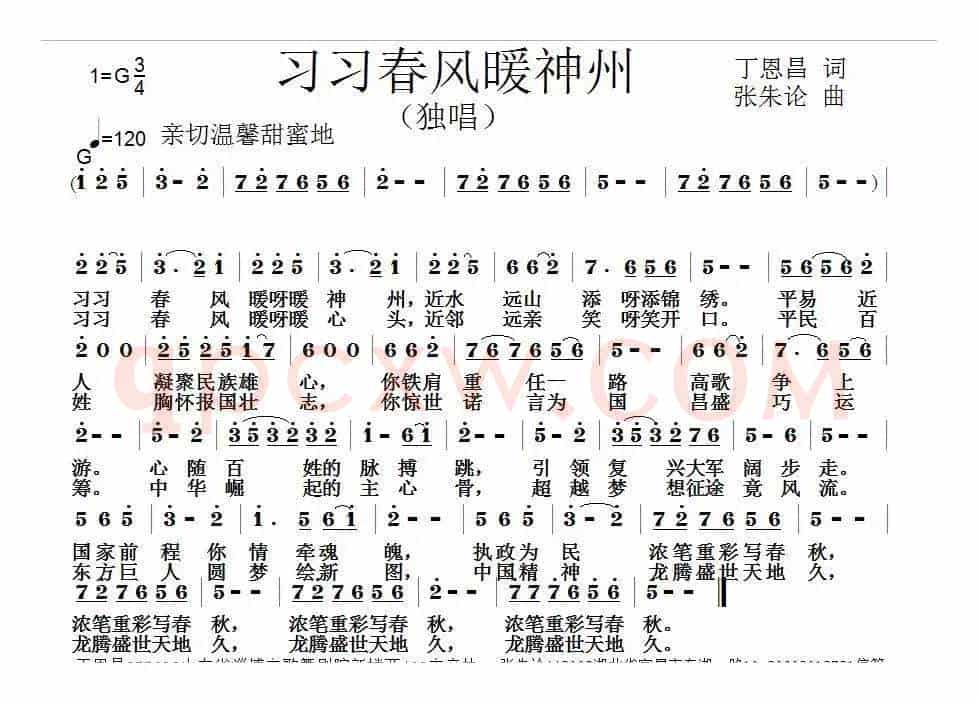 1=G 3/4
习习春风暖神州
丁恩昌 词
(独唱)
张朱论 曲
♩=120 亲切温馨甜蜜地
G
(1 2 5 | 3 - 2 | 7 2 7 6 5 6 | 2 - - | 7 2 7 6 5 6 | 5 - - | 7 2 7 6 5 6 | 5 - - ) |
2 2 5 | 3 . 2 1 | 2 2 5 | 3 . 2 1 | 2 2 5 | 6 6 2 | 7 . 6 5 6 | 5 - - | 5 6 5 6 2 |
习习 春 风 暖呀暖 神 州,近水 远山 添 呀添锦 绣。 平易 近
习习 春 风 暖呀暖 心 头,近邻 远亲 笑 呀笑开 口。 平民 百
2 0 0 | 2 5 2 5 1 7 | 6 0 0 | 6 6 2 | 7 6 7 6 5 6 | 5 - - | 6 6 2 | 7 . 6 5 6 |
人 凝聚民族雄 心, 你铁肩 重 任一 路 高歌 争 上
姓 胸怀报国壮 志, 你惊世 诺 言为 国 昌盛 巧 运
qpcxw.com
2 - - | 5 - 2 | 3 5 3 2 3 2 | 1 - 6 1 | 2 - - | 5 - 2 | 3 5 3 2 7 6 | 5 - 2 | 5 - - |
游。 心 随 百 姓的 脉 搏 跳, 引 领 复 兴大军 阔 步 走。
筹。 中 华 崛 起的 主 心 骨, 超 越 梦 想征途 竟 风 流。
5 6 5 | 3 - 2 | 1 . 5 6 1 | 2 - - | 5 6 5 | 3 - 2 | 7 2 7 6 5 6 | 5 - - |
国家前 程 你 情 牵魂 魄, 执政为 民 浓笔重彩写春 秋,
东方巨 人 圆 梦 绘新 图, 中国精 神 龙腾盛世天地 久,
7 2 7 6 5 6 | 5 - - | 7 2 7 6 5 6 | 2 - - | 7 7 7 6 5 6 | 5 - - ‖
浓笔重彩写春 秋, 浓笔重彩写春 秋, 浓笔重彩写春 秋。
龙腾盛世天地 久, 龙腾盛世天地 久, 龙腾盛世天地 久。